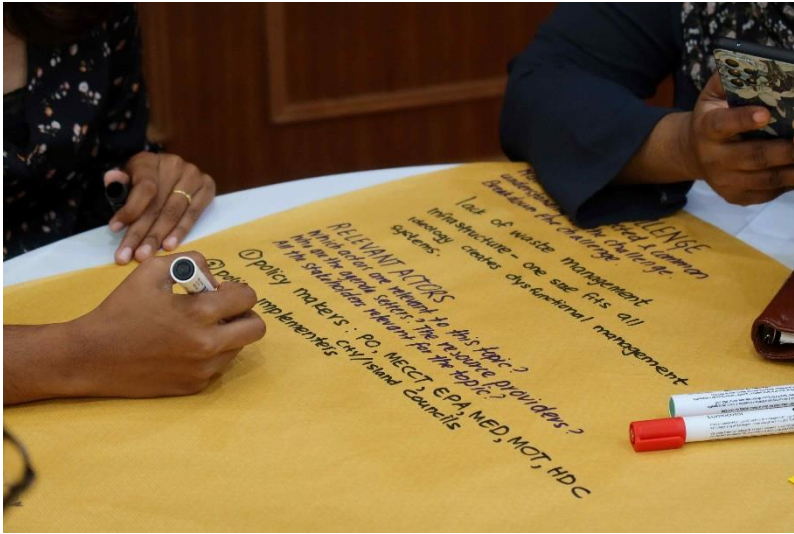 CHALLENGE
understanding the challenge
Breakdown the challenge.
lack of waste management
infrastructure - one size fits all
ideology creates dysfunctional management
systems.
RELEVANT ACTORS
Which actors are relevant to this topic?
Who are the agenda setters? The resource providers?
All the stakeholders relevant for the topic?
① policy makers: PO, MECCT, EPA, MED, MOT, HDC
City/Island Councils
② implementers